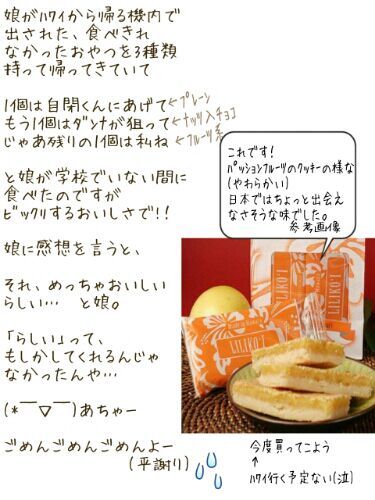 娘がﾊﾜｲから帰る機内で
出された、食べきれ
なかったおやつを3種類
持って帰ってきていて
1個は自閉くんにあげて←ﾌﾟﾚｰﾝ
もう1個はﾀﾞﾝﾅが狙って←ﾅｯﾂ入ﾁｮｺ
じゃあ残りの1個は私ね←ﾌﾙｰﾂ系
と娘が学校でいない間に
食べたのですが
ﾋﾞｯｸﾘするおいしさで!!
娘に感想を言うと、
それ、めっちゃおいしい
らしい… と娘。
「らしい」って、
もしかしてくれるんじゃ
なかったんや…
(*￣▽￣)あちゃー
ごめんごめんごめんよー
(平謝り)
これです!
ﾊﾟｯｼｮﾝﾌﾙｰﾂのｸｯｷｰの様な
(やわらかい)
日本ではちょっと出会え
なさそうな味でした。
参考画像
LILIKO'I
LILIKO'I
今度買ってこよう
↑
ﾊﾜｲ行く予定ない(泣)